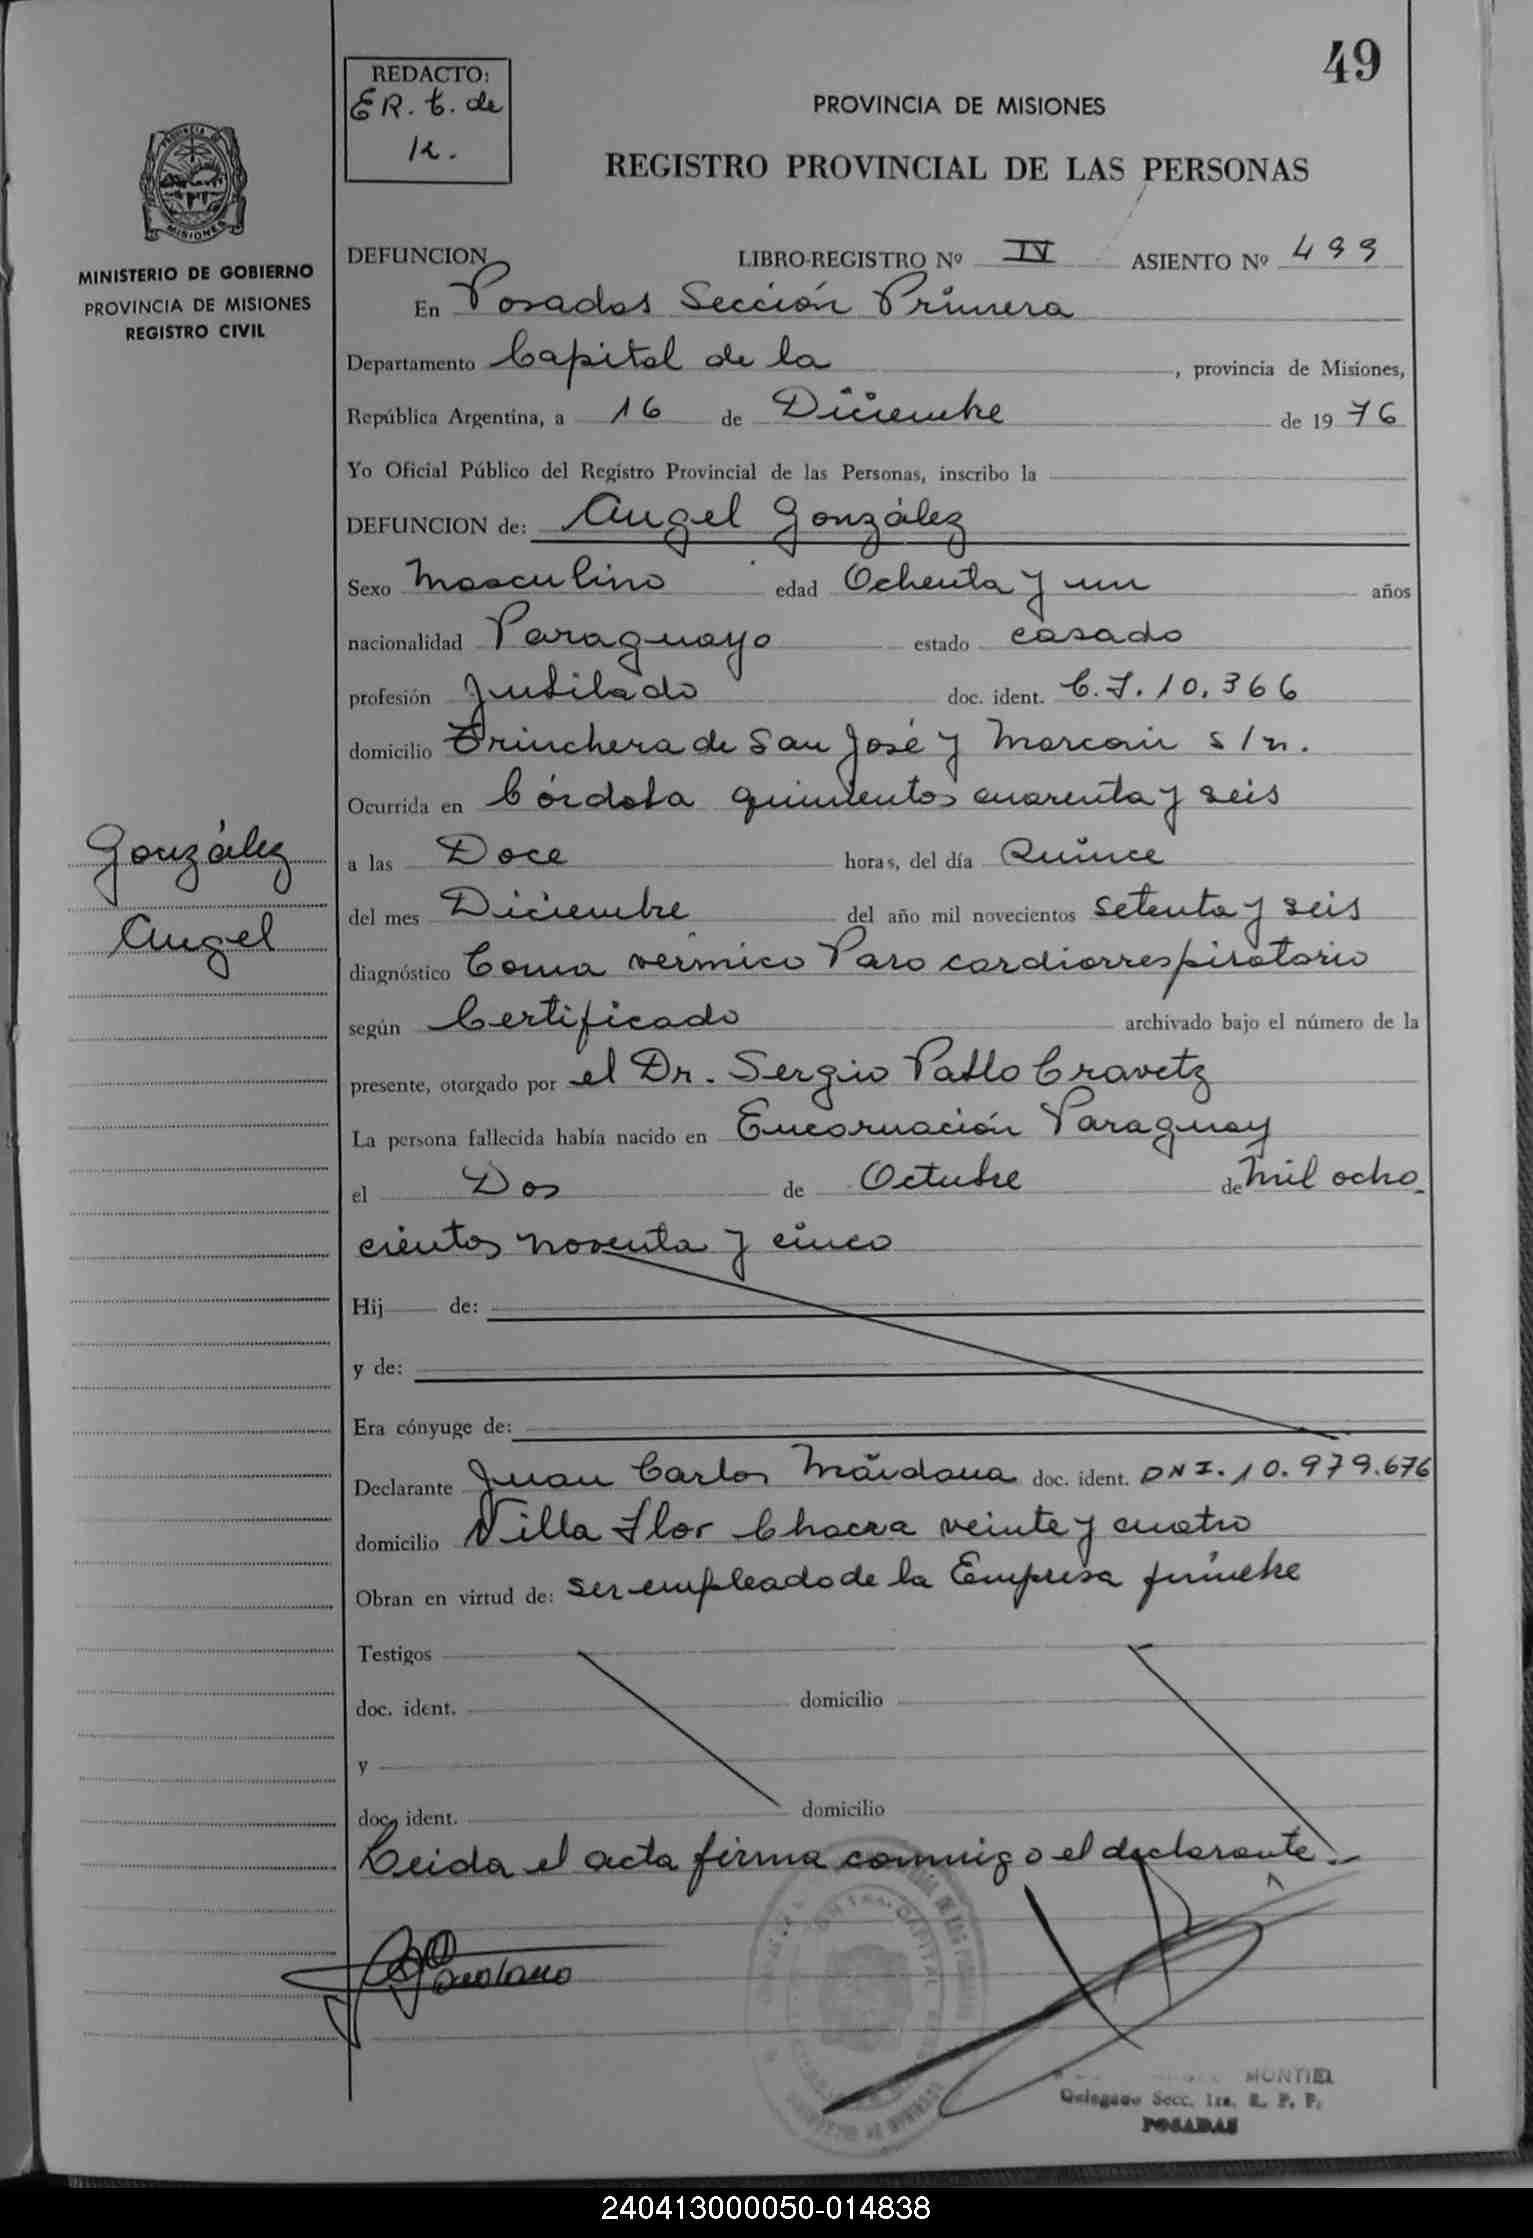 49
REDACTO:
E R. t. de
K.
PROVINCIA DE MISIONES
REGISTRO PROVINCIAL DE LAS PERSONAS
PROVINCIA DE
MISIONES
MINISTERIO DE GOBIERNO
PROVINCIA DE MISIONES
REGISTRO CIVIL
DEFUNCION LIBRO-REGISTRO Nº IV ASIENTO Nº 499
En Posadas Sección Primera
Departamento Capital de la , provincia de Misiones,
República Argentina, a 16 de Diciembre de 1976
Yo Oficial Público del Registro Provincial de las Personas, inscribo la
DEFUNCION de: Angel González
Sexo Masculino edad Ochenta y un años
nacionalidad Paraguayo estado casado
profesión Jubilado doc. ident. C.I. 10.366
domicilio Trinchera de San José y Marconi s/n.
Ocurrida en Córdoba quinientos cuarenta y seis
a las Doce horas, del día Quince
del mes Diciembre del año mil novecientos setenta y seis
diagnóstico Coma vérmico Paro cardiorrespiratorio
según Certificado archivado bajo el número de la
presente, otorgado por el Dr. Sergio Pablo Cravetz
La persona fallecida había nacido en Encarnación Paraguay
el Dos de Octubre de Mil ocho
cientos noventa y cinco
Hij de:
y de:
Era cónyuge de:
Declarante Juan Carlos Maidana doc. ident. DNI. 10.979.676
domicilio Villa Flor Chacra veinte y cuatro
Obran en virtud de: ser empleado de la Empresa fúnebre
Testigos
doc. ident. domicilio
y
doc. ident. domicilio
Leida el acta firma conmigo el declarante.
González
Angel
MONTIEL
Delegado Secc. 1ra. R. P. P.
POSADAS
240413000050-014838